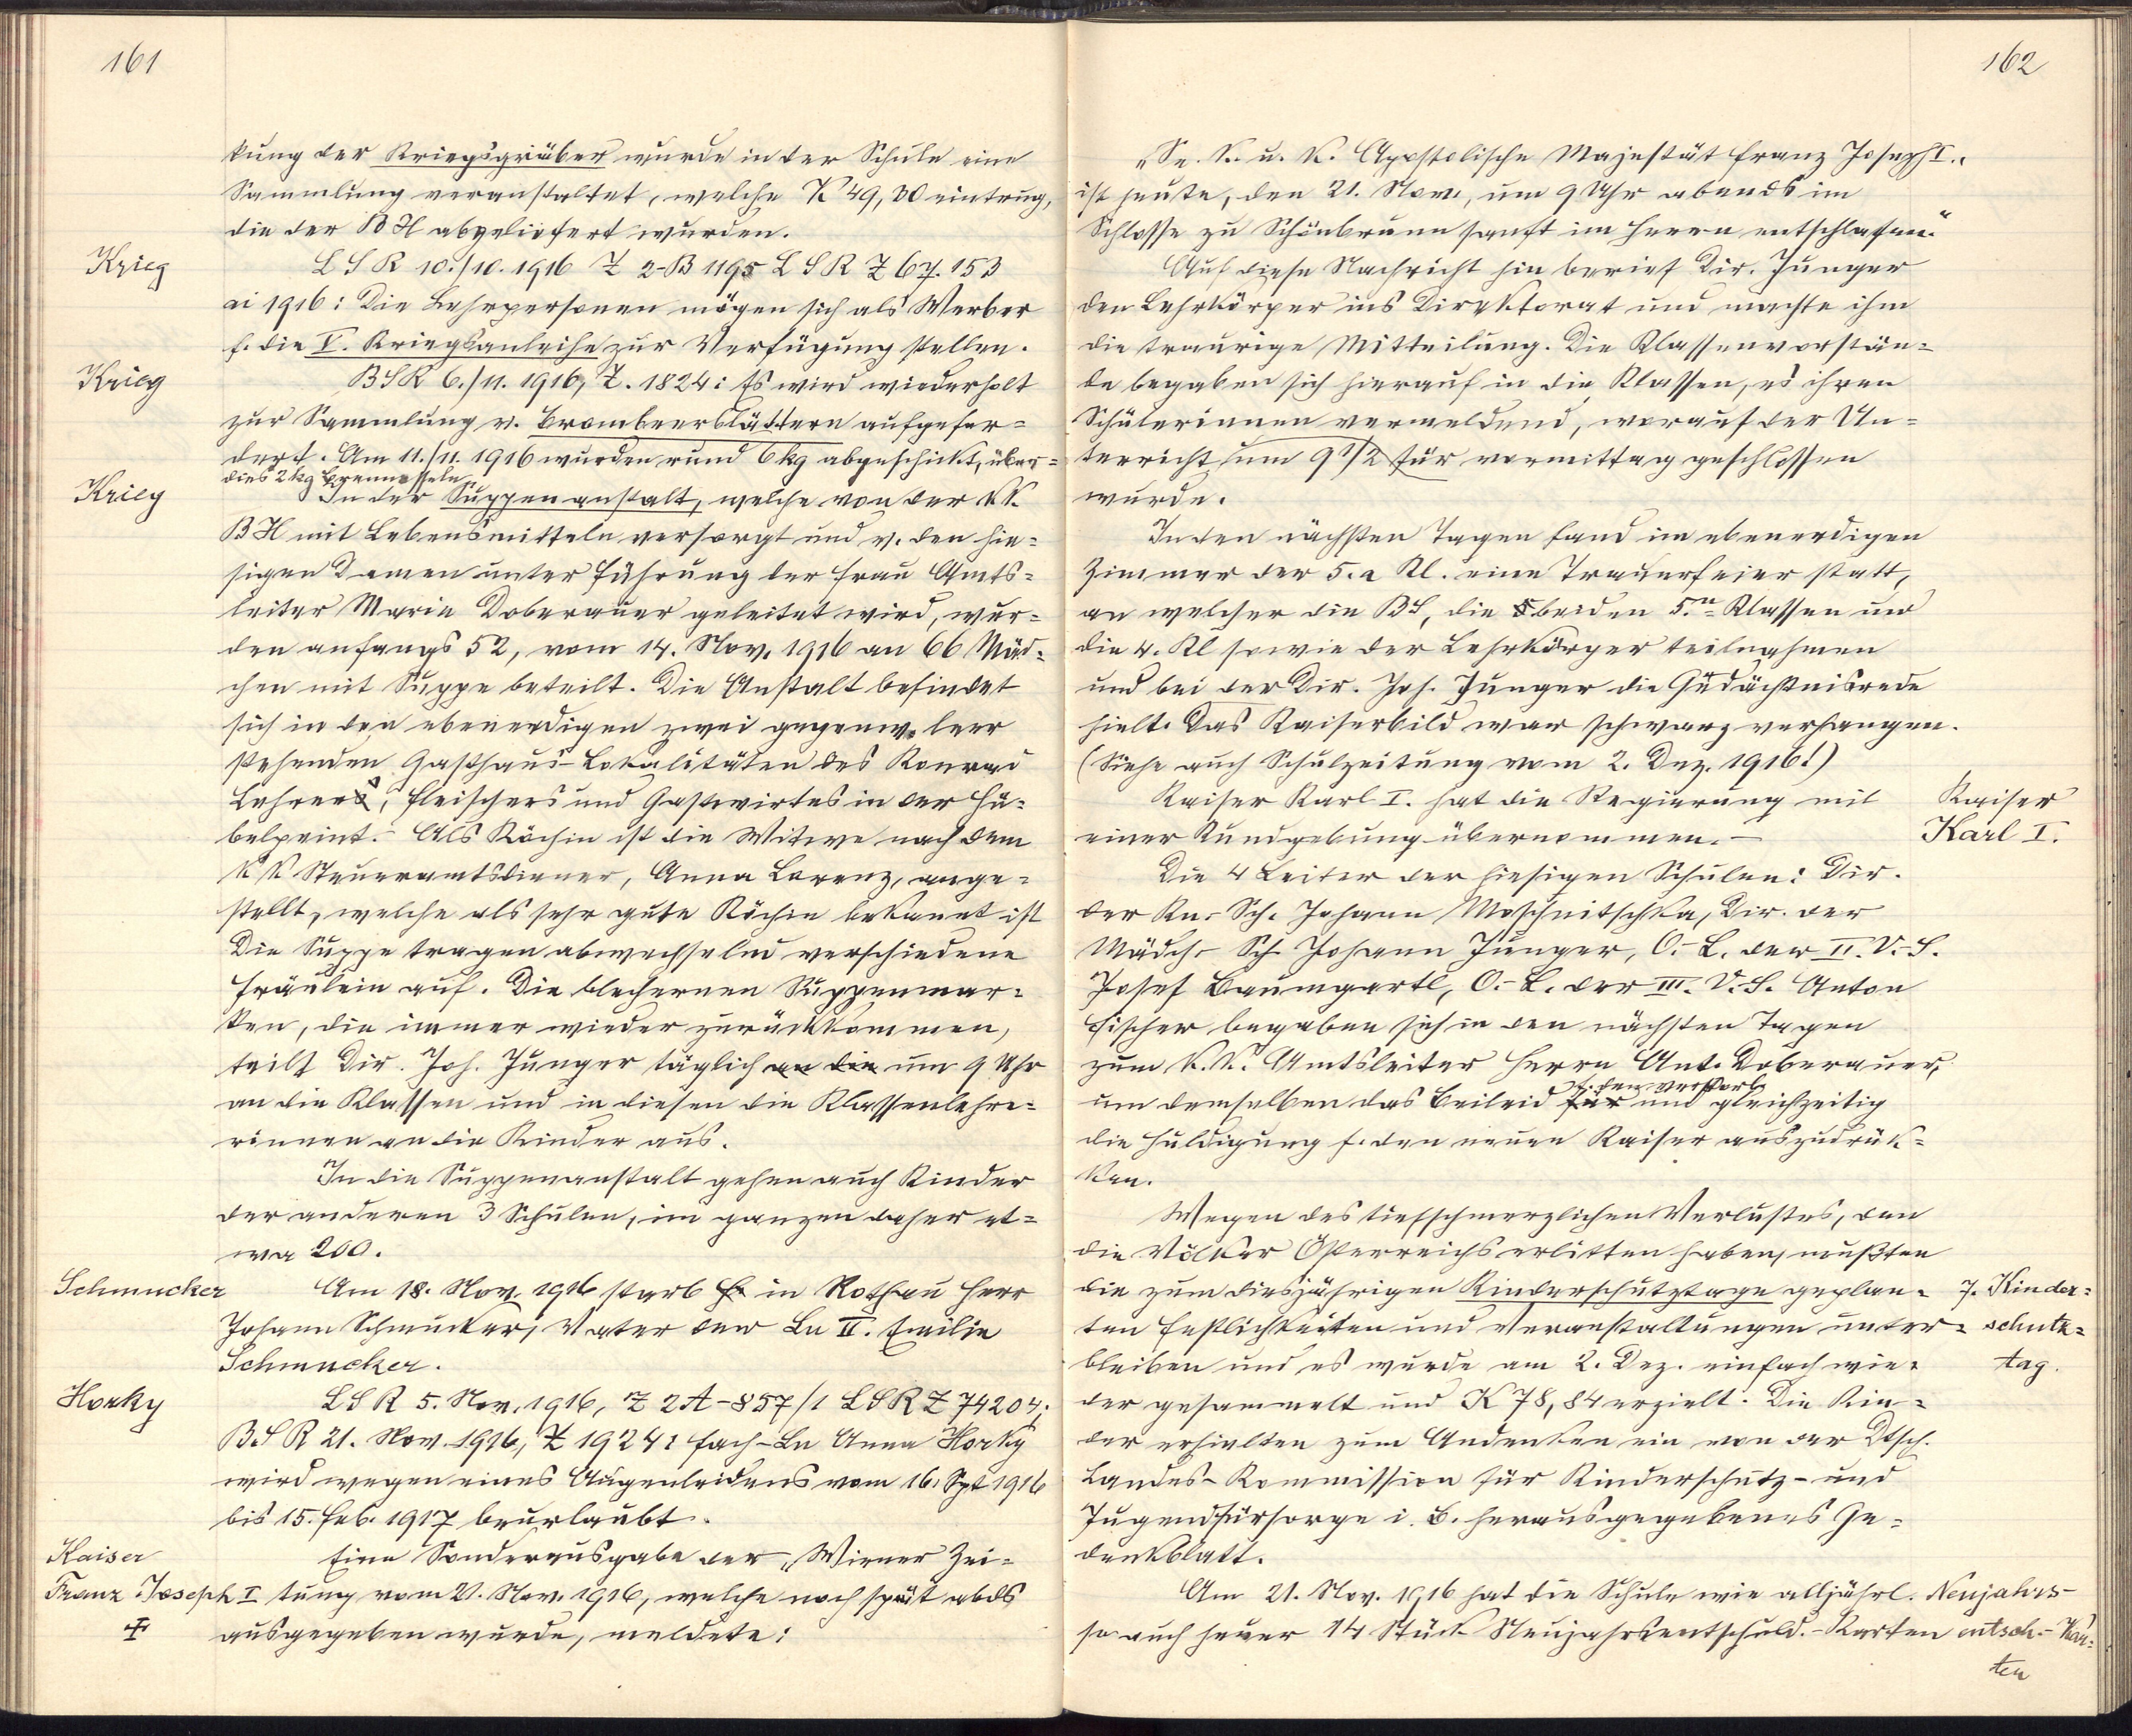 161
kung der Kriegsgräber wurde in der Schule eine
Sammlung veranstaltet, welche K 49,30 eintrug,
die der BH abgeliefert wurden.
Krieg
LSR 10./10. 1916 Z 2-B 1195 LSR Z 67.153
ai 1916: Die Lehrpersonen mögen sich als Werber
f. die V. Kriegsanleihe zur Verfügung stellen.
Krieg
BSR 6./11. 1916, Z. 1824: Es wird wiederholt
zur Sammlung v. Brombeerblättern aufgefor=
dert. Am 11./11. 1916 wurden rund 6 kg abgeschickt, über=
dies 2 kg Brennesseln
Krieg
In der Suppenanstalt, welche von der k.k.
BH mit Lebensmitteln versorgt und v. den hie=
sigen Damen unter Führung der Frau Amts=
leiter Marie Doberauer geleitet wird, wur=
den anfangs 52, vom 14. Nov. 1916 an 66 Mäd=
chen mit Suppe beteilt. Die Anstalt befindet
sich in den ebenerdigen zwei gegenw. leer
stehenden Gasthaus-Lokalitäten des Konrad
Lehrer, Fleischers und Gastwirtes in der Hü=
belpeint. Als Köchin ist die Witwe nach dem
k k Steueramtsdiener, Anna Lorenz, ange=
stellt, welche als sehr gute Köchin bekannt ist
Die Suppe tragen abwechselnd verschiedene
Fräulein auf. Die blechernen Suppenmar=
ken, die immer wieder zurückkommen,
teilt Dir. Joh. Junger täglich an die um 9 Uhr
an die Klassen und in diesen die Klassenlehre=
rinnen an die Kinder aus.
In die Suppenanstalt gehen auch Kinder
der anderen 3 Schulen, im ganzen daher et=
wa 200.
Schmucker
Am 18. Nov. 1916 starb in Rothau Herr
Johann Schmucker, Vater der Ln II. Emilie
Schmucker.
Horky
LSR 5. Nov. 1916, Z 2A-857/1 LSR Z 74204;
BSR 21. Nov. 1916, Z 1924: Fach-Ln Anna Horky
wird wegen eines Augenleidens vom 16. Spt 1916
bis 15. Feb. 1917 beurlaubt.
Kaiser
Franz Joseph I
✝
Eine Sonderausgabe der „Wiener Zei=
tung vom 21. Nov. 1916, welche noch spät abds
ausgegeben wurde, meldete:
162
„Se. k. u. k. Apostolische Majestät Franz Joseph I.
ist heute, den 21. Nov., um 9 Uhr abends im
Schlosse zu Schönbrunn sanft im Herrn entschlafen."
Auf diese Nachricht hin berief Dir. Junger
den Lehrkörper ins Direktorat und machte ihm
die traurige Mitteilung. Die Klassenvorstän=
de begaben sich hierauf in die Klassen, es ihren
Schülerinnen vermeldend, worauf der Un=
terricht um 9 1/2 für vormittag geschlossen
wurde.
In den nächsten Tagen fand im ebenerdigen
Zimmer der 5. a Kl. eine Trauerfeier statt,
an welcher die BS, die beiden 5.n Klassen und
die 4. Kl sowie der Lehrkörper teilnahmen
und bei der Dir. Joh. Junger die Gedächtnisrede
hielt. Das Kaiserbild war schwarz verhangen.
(Siehe auch Schulzeitung vom 2. Dez. 1916!)
Kaiser Karl I. hat die Regierung mit
einer Kundgebung übernommen. –
Kaiser
Karl I.
Die 4 Leiter der hiesigen Schulen: Dir.
der Kn.-Sch. Johann Moschnitschka, Dir. der
Mädch.-Sch Johann Junger, O.-L. der II. V.-S.
Josef Baumgartl, O.-L. der III. V.-S. Anton
Fischer begaben sich in den nächsten Tagen
zum k. k. Amtsleiter Herrn Ant. Doberauer,
um demselben das Beileid für f. den verstorb. und gleichzeitig
die Huldigung f. den neuen Kaiser auszudrük=
ken.
Wegen des tiefschmerzlichen Verlustes, den
die Völker Österreichs erlitten haben, mußten
die zum diesjährigen Kinderschutztage geplan=
ten Festlichkeiten und Veranstaltungen unter=
bleiben und es wurde am 2. Dez. einfach wie=
der gesammelt und K 78,84 erzielt. Die Kin=
der erhielten zum Andenken ein von der Dtsch.
Landes-Kommission für Kinderschutz- und
Jugendfürsorge i. B. herausgegebenes Ge=
denkblatt.
7. Kinder=
schutz=
tag.
Am 21. Nov. 1916 hat die Schule wie alljährl.
so auch heuer 14 Stück Neujahrsentschuld.-Karten
Neujahrs-
entsch.-Kar=
ten